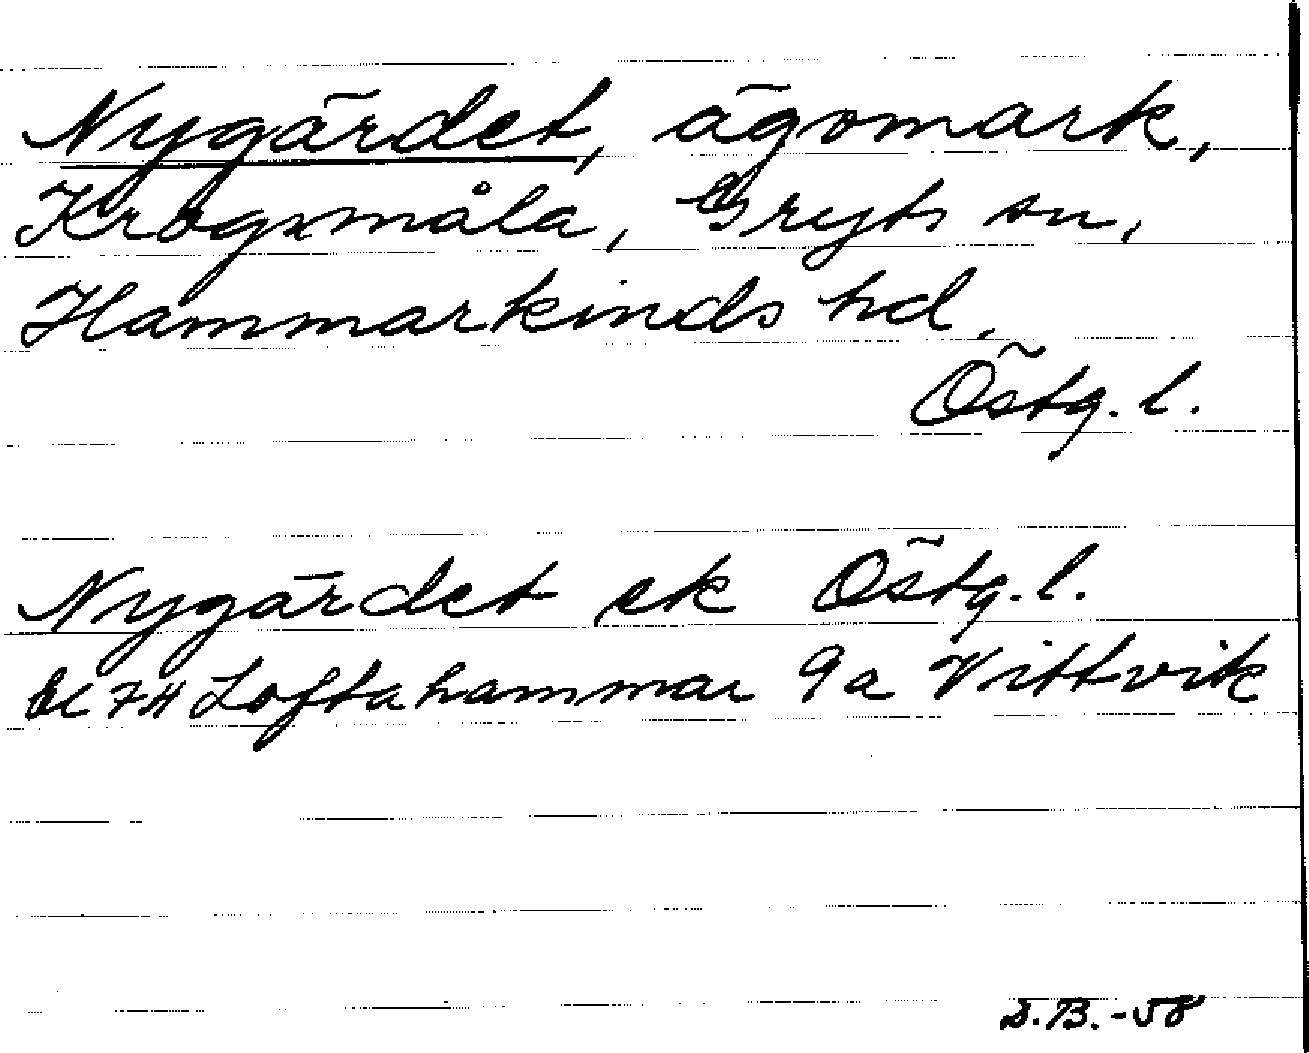 Nygärdet, ägomark,
Krogsmåla, Gryts sn,
Hammarkinds hd.
Östg. l.
Nygärdet ek Östg. l.
Bl 74 Loftahammar 9a Vittvik
D.B.-58